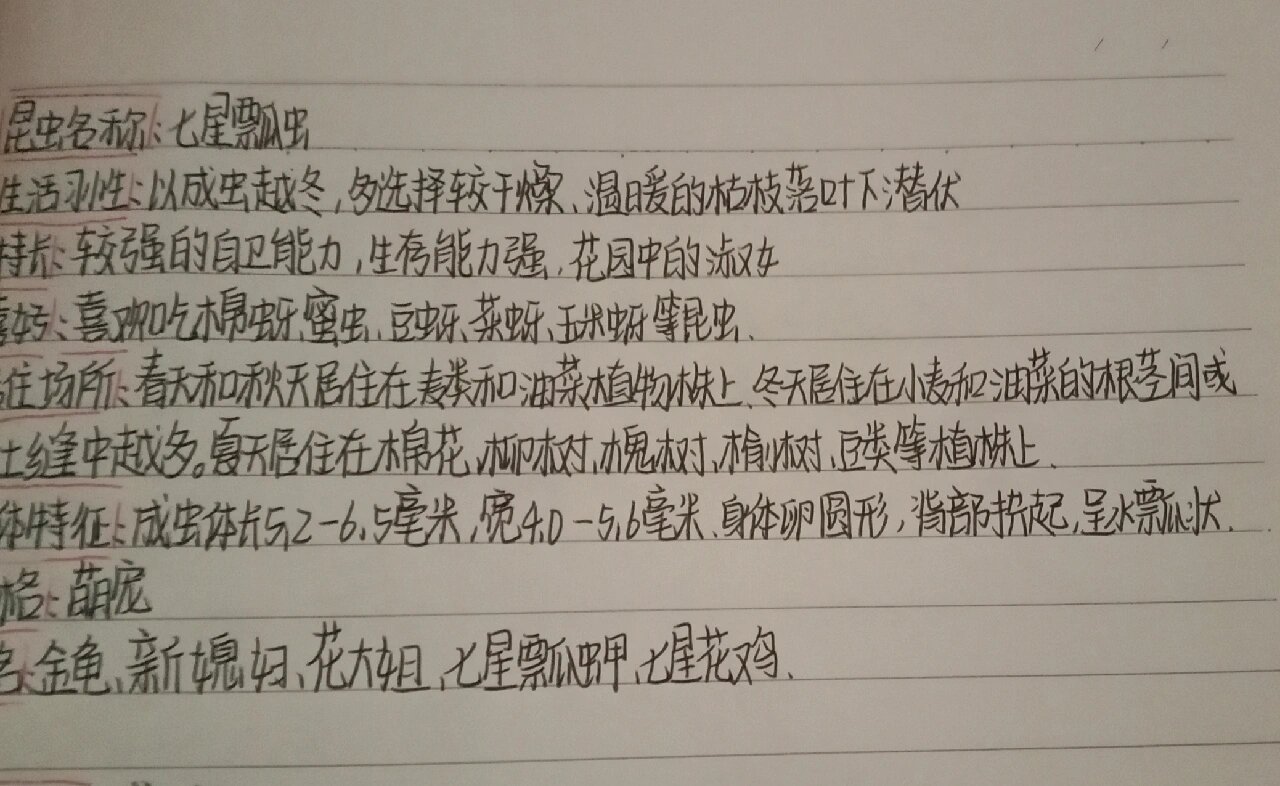 昆虫名称:七星瓢虫
生活习性:以成虫越冬,多选择较干燥、温暖的枯枝落叶下潜伏
特长:较强的自卫能力,生存能力强,花园中的淑女
喜好:喜欢吃棉蚜、蜜虫、豆蚜、菜蚜、玉米蚜等昆虫.
住场所:春天和秋天居住在麦类和油菜植物株上、冬天居住在小麦和油菜的根茎间或
土缝中越多。夏天居住在棉花、柳树、槐树、榆树、豆类等植株上.
体特征:成虫体长5,2-6,5毫米,宽4.0-5,6毫米、身体卵圆形,背部拱起,呈水瓢状.
格:萌宠
名:金龟、新媳妇、花大姐、七星瓢虫甲、七星花鸡.